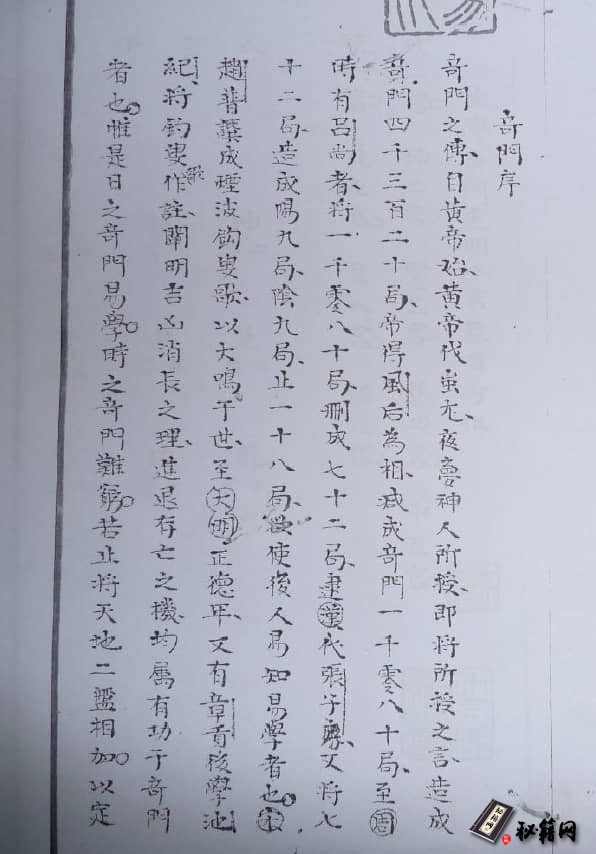 奇門序
奇門之傳、自黃帝始、黃帝代蚩尤、夜夢神人所授、即將所授之言、造成
奇門四千三百二十局、帝得風后為相、减成奇門一千零八十局、至周
時有呂尚者、將一千零八十局、刪成七十二局、逮漢代張子房、又將七
十二局、造成陽九局、陰九局、止一十八局、使後人易知易學者也。宋
趙普譔成煙波釣叟歌、以大鳴于世、至大明正德年、又有章貢後學池
紀、將釣叟歌作註、闡明吉凶消長之理、進退存亡之機、均属有功于奇門
者也。惟是日之奇門易學。時之奇門難窮。若止將天地二盤相加。以定
秘籍网